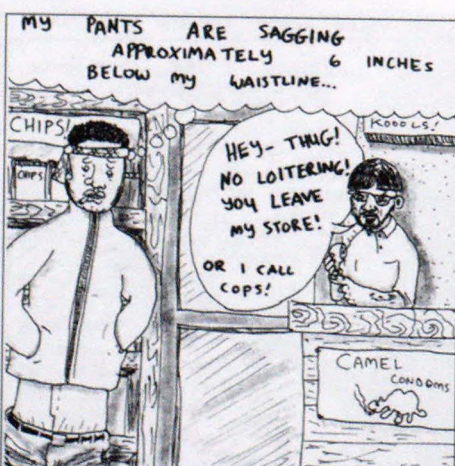 MY PANTS ARE SAGGING
APPROXIMATELY 6 INCHES
BELOW MY WAISTLINE...
CHIPS!
KOOOLS!
CHIPS
HEY- THUG!
NO LOITERING!
YOU LEAVE
MY STORE!
OR I CALL
COPS!
CAMEL
CONDOMS